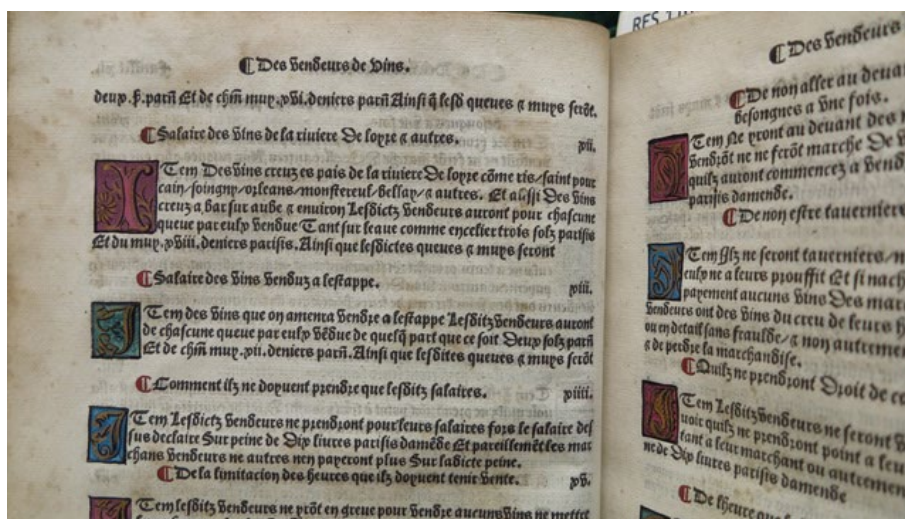 Des Vendeurs de Vins.
deux. s̃. parñ Et de chm̃ muy. xvi. deniers parñ Ainsi q̃ lesd̃ queues ⁊ muys serõt.
¶ Salaire des Vins de la riuiere De loyre ⁊ autres. xii.
ITem Des vins creuz es pais de la riuiere De loyre cõme ris/saint pour
cain/soingny/orleans/monstereul/bellay/⁊ autres. Et aussi Des vins
creuz a bar sur aube ⁊ enuiron Lesdictz vendeurs auront pour chascune
queue par eulx vendue Tant sur leaue comme en celier trois solz parisis
Et du muy. xviii. deniers parisis. Ainsi que lesdictes queues ⁊ muys seront
¶ Salaire des Vins venduz a lestappe. xiii.
ITem des vins que on amenra vendre a lestappe Lesditz vendeurs auront
de chascune queue par eulx vẽdue de quelq̃ part que ce soit Deux solz parñ
Et de chm̃ muy. xii. deniers parñ. Ainsi que lesdites queues ⁊ muys serõt
¶ Comment ilz ne doyuent prendre que lesditz salaires. xiiii.
ITem Lesdictz vendeurs ne prendront pour leurs salaires fors le salaire des
sus declaire Sur peine de Dix liures parisis damẽde Et pareillemẽt les mar
chans vendeurs ne autres nen payeront plus Sur ladicte peine.
¶ De la limitacion des heures que ilz doyuent tenir vente. xv.
ITem lesditz vendeurs ne yrõt en greue pour vendre aucuns vins ne mettre
¶ Des vendeurs
¶ De non aller au deuant
besongnes a vne fois.
ITem Ne yront au deuant des
vendrõt ne ne ferõt marche De
quilz auront commencez a vend
parisis damende.
¶ De non estre tauerniers
ITem Ilz ne seront tauerniers/
eulx ne a leurs prouffit Et si
payement aucuns vins Des mar
vendeurs ont des vins du creu de leurs
ou en detail sans fraulde/⁊ non autrement
⁊ de perdre la marchandise.
¶ Quilz ne prendront Droit de
ITem Lesditz vendeurs ne seront
uoir quilz ne prendront point a leu
tant a leur marchant ou autrement
ne de Dix liures parisis damende
¶ De lheure que